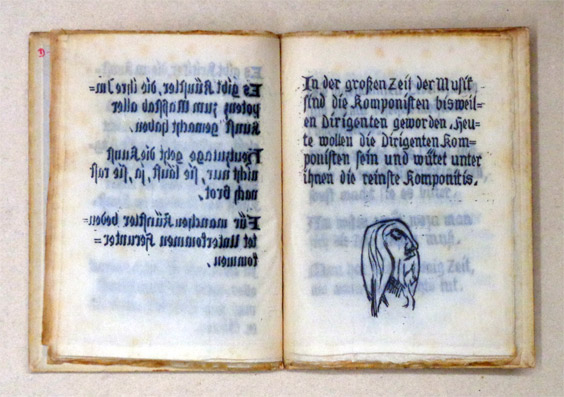 Es gibt Künstler, die ihre Im=
potenz zum Maßstab aller
Kunst gemacht haben.
Heutzutage geht die Kunst
nicht nur, sie läuft, ja, sie rast
nach Brot.
Für manchen Künstler bedeu=
tet Unterkommen Herunter=
kommen.
In der großen Zeit der Musik
sind die Komponisten bisweil=
en Dirigenten geworden. Heu=
te wollen die Dirigenten Kom=
ponisten sein und wütet unter
ihnen die reinste Komponitis.